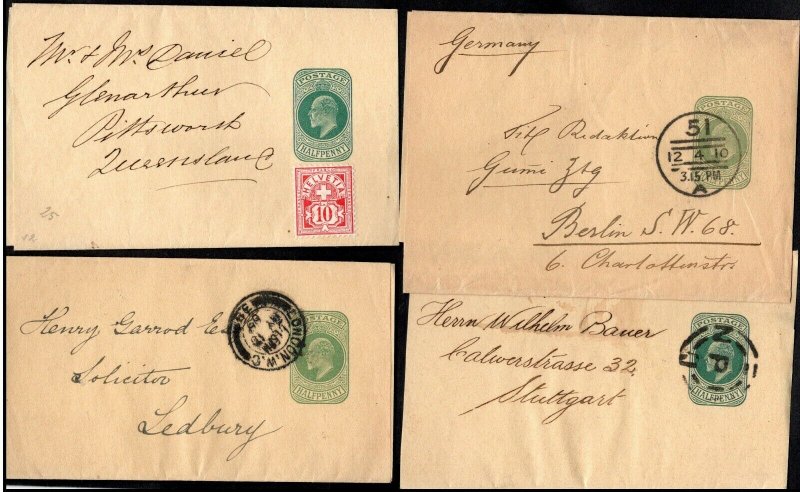 Mr & Mrs Daniel
Glenarthur
Pittsworth
Queensland
POSTAGE
HALFPENNY
HELVETIA
10
25
Germany
Redaktion
Gumi Ztg
Berlin S.W. 68.
6. Charlottenstr
POSTAGE
51
12 4 10
3.15 PM
A
Henry Garrod Es
Solicitor
Ledbury
LONDON. W.C.
POSTAGE
HALFPENNY
Herrn Wilhelm Bauer
Calwerstrasse 32,
Stuttgart
POSTAGE
NP
HALFPENNY